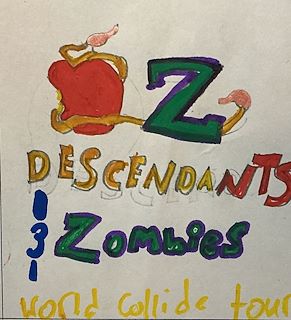 Z
DESCENDANTS
& Zombies
world collide tour